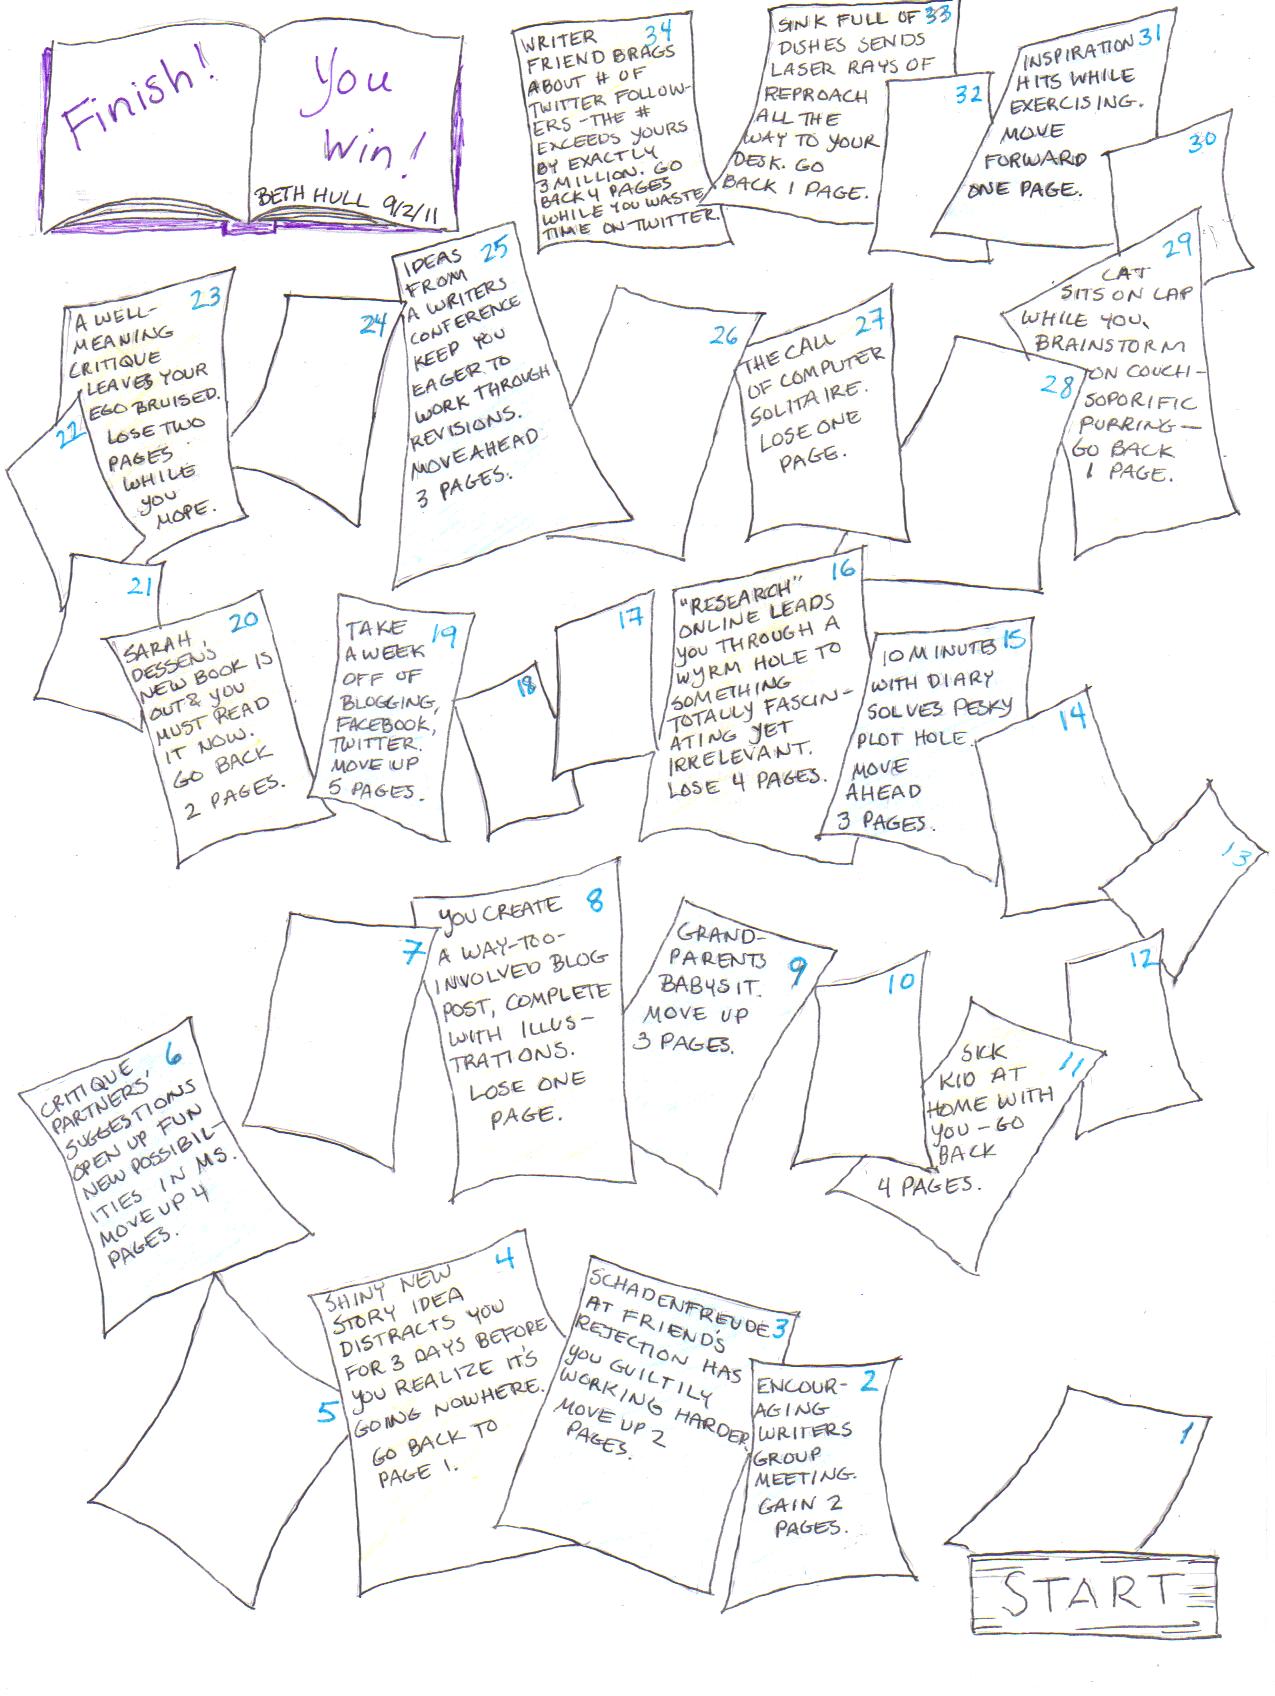 Finish!
You
Win!
BETH HULL 9/2/11
34
WRITER
FRIEND BRAGS
ABOUT # OF
TWITTER FOLLOW-
ERS - THE #
EXCEEDS YOURS
BY EXACTLY
3 MILLION. GO
BACK 4 PAGES
WHILE YOU WASTE
TIME ON TWITTER.
SINK FULL OF 33
DISHES SENDS
LASER RAYS OF
REPROACH
ALL THE
WAY TO YOUR
DESK. GO
BACK 1 PAGE.
32
INSPIRATION 31
HITS WHILE
EXERCISING.
MOVE
FORWARD
ONE PAGE.
30
23
A WELL-
MEANING
CRITIQUE
LEAVES YOUR
EGO BRUISED.
LOSE TWO
PAGES
WHILE
YOU
MOPE.
22
24
IDEAS 25
FROM
A WRITERS
CONFERENCE
KEEP YOU
EAGER TO
WORK THROUGH
REVISIONS.
MOVE AHEAD
3 PAGES.
26
27
THE CALL
OF COMPUTER
SOLITAIRE.
LOSE ONE
PAGE.
28
29
CAT
SITS ON LAP
WHILE YOU
BRAINSTORM
ON COUCH-
SOPORIFIC
PURRING-
GO BACK
1 PAGE.
21
20
SARAH
DESSEN'S
NEW BOOK IS
OUT & YOU
MUST READ
IT NOW.
GO BACK
2 PAGES.
TAKE 19
A WEEK
OFF OF
BLOGGING,
FACEBOOK,
TWITTER.
MOVE UP
5 PAGES.
18
17
16
"RESEARCH"
ONLINE LEADS
YOU THROUGH A
WYRM HOLE TO
SOMETHING
TOTALLY FASCIN-
ATING YET
IRRELEVANT.
LOSE 4 PAGES.
10 MINUTES 15
WITH DIARY
SOLVES PESKY
PLOT HOLE.
MOVE
AHEAD
3 PAGES.
14
13
7
YOU CREATE 8
A WAY-TOO-
INVOLVED BLOG
POST, COMPLETE
WITH ILLUS-
TRATIONS.
LOSE ONE
PAGE.
GRAND-
PARENTS
BABYSIT. 9
MOVE UP
3 PAGES.
10
SICK 11
KID AT
HOME WITH
YOU - GO
BACK
4 PAGES.
12
6
CRITIQUE
PARTNERS'
SUGGESTIONS
OPEN UP FUN
NEW POSSIBIL-
ITIES IN MS.
MOVE UP 4
PAGES.
5
4
SHINY NEW
STORY IDEA
DISTRACTS YOU
FOR 3 DAYS BEFORE
YOU REALIZE IT'S
GOING NOWHERE.
GO BACK TO
PAGE 1.
SCHADENFREUDE 3
AT FRIEND'S
REJECTION HAS
YOU GUILTILY
WORKING HARDER
MOVE UP 2
PAGES.
ENCOUR- 2
AGING
WRITERS
GROUP
MEETING.
GAIN 2
PAGES.
1
START